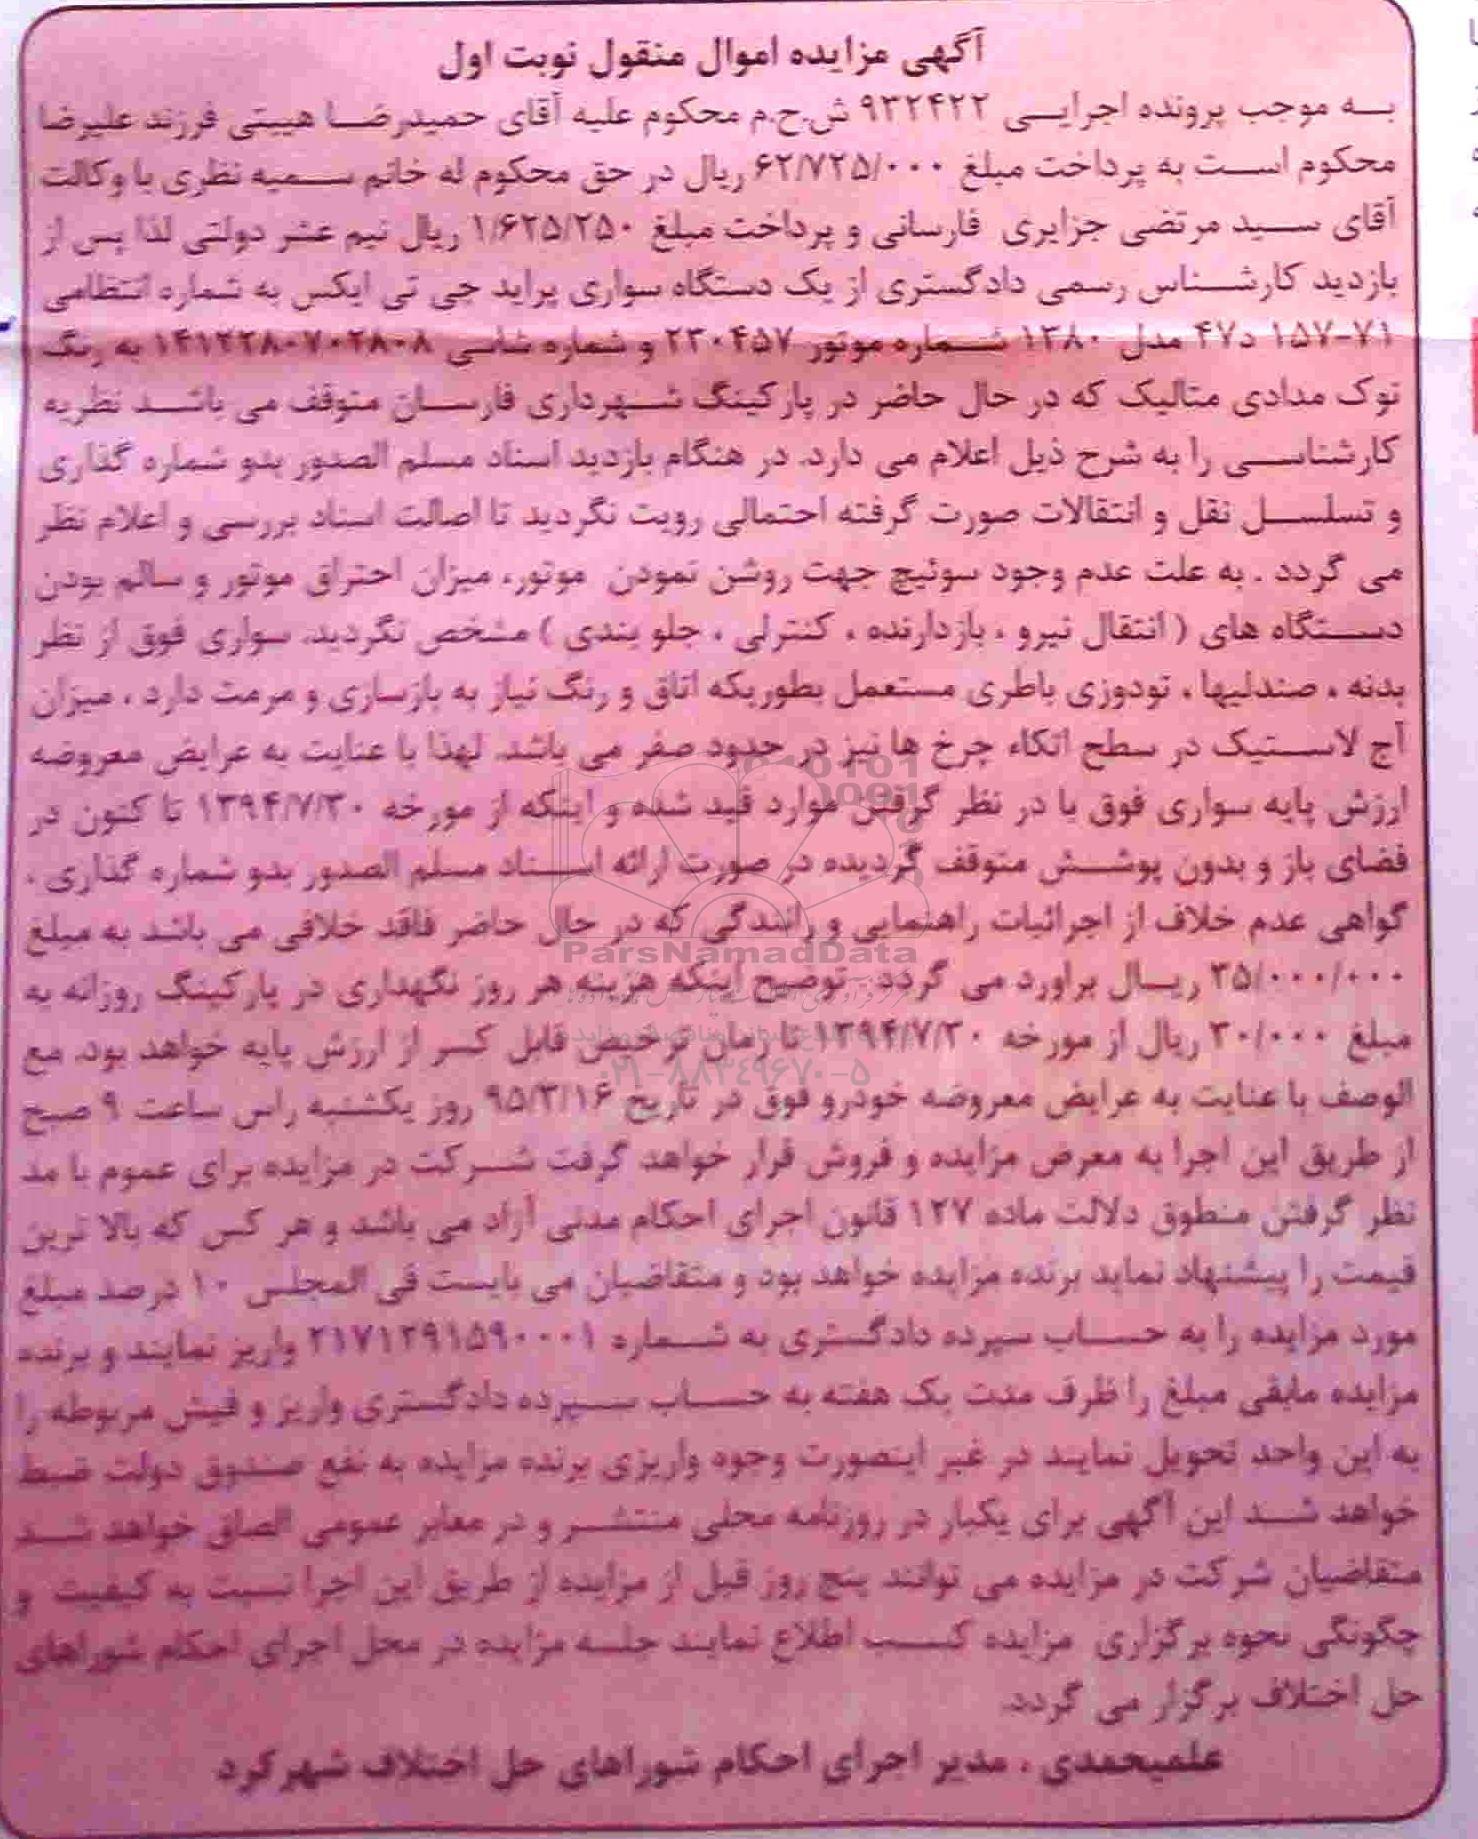 آگهی مزایده اموال منقول نوبت اول
به موجب پرونده اجرایی ۹۳۲۴۲۲ ش.ح.م محکوم علیه آقای حمیدرضا هیبتی فرزند علیرضا
محکوم است به پرداخت مبلغ ۶۲/۷۲۵/۰۰۰ ریال در حق محکوم له خانم سمیه نظری با وکالت
آقای سید مرتضی جزایری فارسانی و پرداخت مبلغ ۱/۶۲۵/۲۵۰ ریال نیم عشر دولتی لذا پس از
بازدید کارشناس رسمی دادگستری از یک دستگاه سواری پراید جی تی ایکس به شماره انتظامی
۷۱-۱۵۷ د۴۷ مدل ۱۳۸۰ شماره موتور ۲۳۰۴۵۷ و شماره شاسی به رنگ
نوک مدادی متالیک که در حال حاضر در پارکینگ شهرداری فارسان متوقف می باشد نظریه
کارشناسی را به شرح ذیل اعلام می دارد. در هنگام بازدید اسناد مسلم الصدور بدو شماره گذاری
و تسلسل نقل و انتقالات صورت گرفته احتمالی رویت نگردید تا اصالت اسناد بررسی و اعلام نظر
می گردد . به علت عدم وجود سوئیچ جهت روشن نمودن موتور، میزان احتراق موتور و سالم بودن
دستگاه های ( انتقال نیرو ، بازدارنده ، کنترلی ، جلو بندی ) مشخص نگردید. سواری فوق از نظر
بدنه ، صندلیها ، تودوزی باطری مستعمل بطوریکه اتاق و رنگ نیاز به بازسازی و مرمت دارد ، میزان
آج لاستیک در سطح اتکاء چرخ ها نیز در حدود صفر می باشد. لهذا با عنایت به عرایض معروضه
ارزش پایه سواری فوق با در نظر گرفتن موارد قید شده و اینکه از مورخه ۱۳۹۴/۷/۳۰ تا کنون در
فضای باز و بدون پوشش متوقف گردیده در صورت ارائه اسناد مسلم الصدور بدو شماره گذاری ،
گواهی عدم خلاف از اجرائیات راهنمایی و رانندگی که در حال حاضر فاقد خلافی می باشد به مبلغ
۳۵/۰۰۰/۰۰۰ ریال براورد می گردد. توضیح اینکه هزینه هر روز نگهداری در پارکینگ روزانه به
مبلغ ۳۰/۰۰۰ ریال از مورخه ۱۳۹۴/۷/۳۰ تا زمان ترخیص قابل کسر از ارزش پایه خواهد بود. مع
الوصف با عنایت به عرایض معروضه خودرو فوق در تاریخ ۹۵/۳/۱۶ روز یکشنبه راس ساعت ۹ صبح
از طریق این اجرا به معرض مزایده و فروش قرار خواهد گرفت شرکت در مزایده برای عموم با مد
نظر گرفتن منطوق دلالت ماده ۱۲۷ قانون اجرای احکام مدنی آزاد می باشد و هر کس که بالا ترین
قیمت را پیشنهاد نماید برنده مزایده خواهد بود و متقاضیان می بایست فی المجلس ۱۰ درصد مبلغ
مورد مزایده را به حساب سپرده دادگستری به شماره ۲۱۷۱۲۹۱۵۹۰۰۰۱ واریز نمایند و برنده
مزایده مابقی مبلغ را ظرف مدت یک هفته به حساب سپرده دادگستری واریز و فیش مربوطه را
به این واحد تحویل نمایند در غیر اینصورت وجوه واریزی برنده مزایده به نفع صندوق دولت ضبط
خواهد شد این آگهی برای یکبار در روزنامه محلی منتشر و در معابر عمومی الصاق خواهد شد
متقاضیان شرکت در مزایده می توانند پنج روز قبل از مزایده از طریق این اجرا نسبت به کیفیت و
چگونگی نحوه برگزاری مزایده کسب اطلاع نمایند جلسه مزایده در محل اجرای احکام شوراهای
حل اختلاف برگزار می گردد.
علمیحمدی ، مدیر اجرای احکام شوراهای حل اختلاف شهرکرد
ParsNamadData
۰۲۱-۸۸۳۴۹۶۷۰-۵